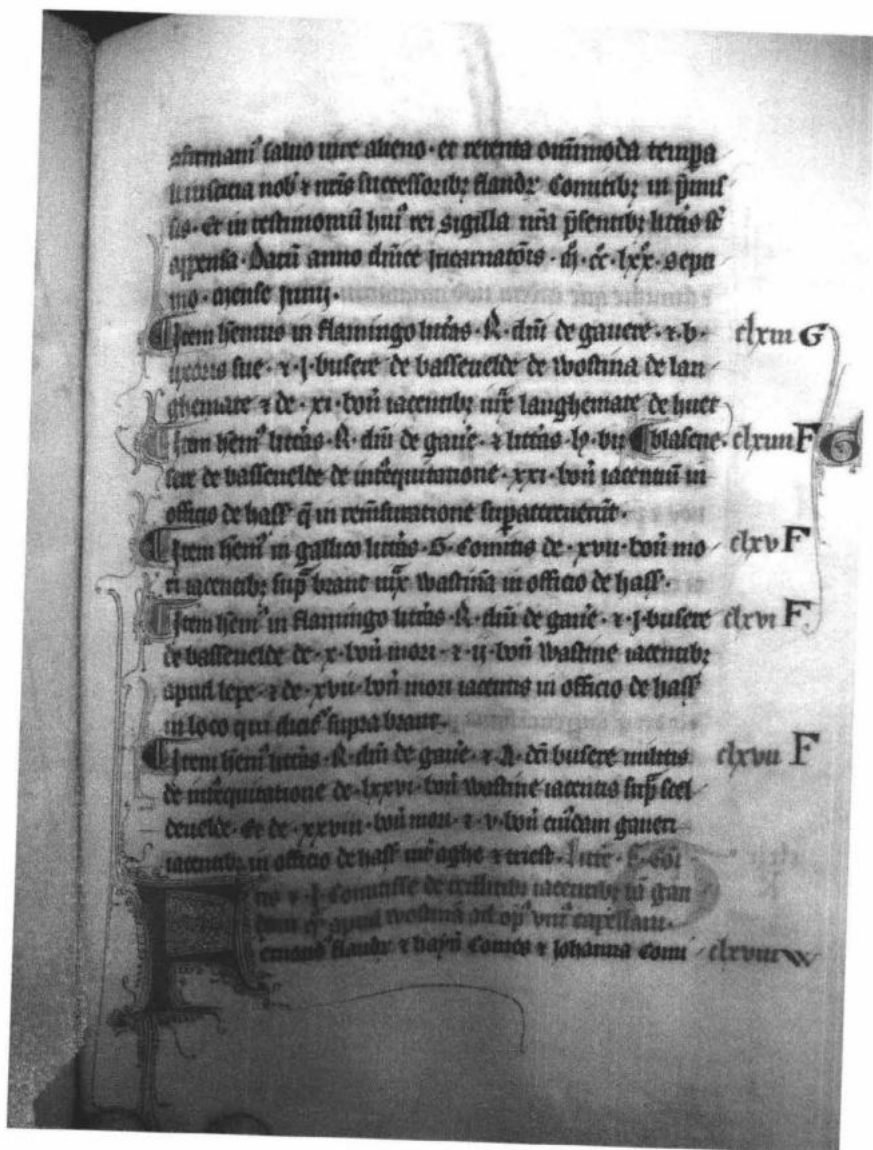 firmam᷒ saluo iure alieno · et retenta omimoda tempa
li iusticia nob᷒ ⁊ nris successorib; flandr comitib; in p̄mis
sis · Et in testimoniū hui᷒ rei sigilla nr̄a p̄sentib; lrīs st̄
appensa · Datū anno dn̄ice incarnatōis · m̊ · cc̊ · lxx̊ · septi
mo · mense junij ·
Item hēmus in flamingo lrās · R · dn̄i de gauere · ⁊ b · clxiii G
uxoris sue · ⁊ · J · busere de basseuelde de wostina de lan
ghemarc ⁊ de · xi · bon̄ iacentib; int̄ langhemarc de huet
Item hēm᷒ lrās · R · dn̄i de gau̾e · ⁊ lrās · bu blasene · clxiiii F G
sere de basseuelde de int̾equitatione · xxi · bon̄ iacentiū in
officio de hass᷒ q̄ in rem̄suratione sup̾accreuerūt ·
Item hēm᷒ in gallico lrās · G · Comitis de · xvii · bon̄ mo clxv F
ri iacentib; sup̄ brane iux̄ wastinā in officio de hass᷒ ·
Item hēm᷒ in flamingo lrās · R · dn̄i de gau̾e · ⁊ · J · busere clxvi F
de basseuelde de · x · bon̄ mori · ⁊ ij · bon̄ wastine iacentib;
apud lepe · ⁊ de · xvii · bon̄ mori iacentis in officio de hass᷒
in loco qui dicit᷒ supra brane ·
Item hēm᷒ lrās · R · dn̄i de gau̾e · ⁊ A · dc̄i busere militis clxvii F
de int̾equitatione de · lxxvi · bon̄ wastine iacentis sup̄ scel
deuelde · Et de · xxviii · bon̄ mori · ⁊ v · bon̄ cuiusdam gaueri
iacentib; in officio de hass᷒ int̾ aghe ⁊ triest · F · Comi
tis ⁊ J · Comitisse de iacentib; in gan
apud wostinā ad op᷒ uni᷒ capellani ·
F ernand᷒ flandr ⁊ hayn̄ Comes ⁊ Johanna Comi clxviii W